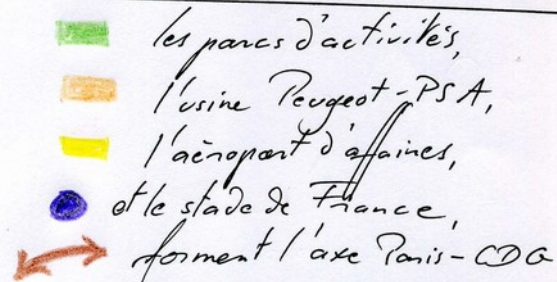 les parcs d'activités,
l'usine Peugeot-PSA,
l'aéroport d'affaires,
et le stade de France,
forment l'axe Paris-CDG